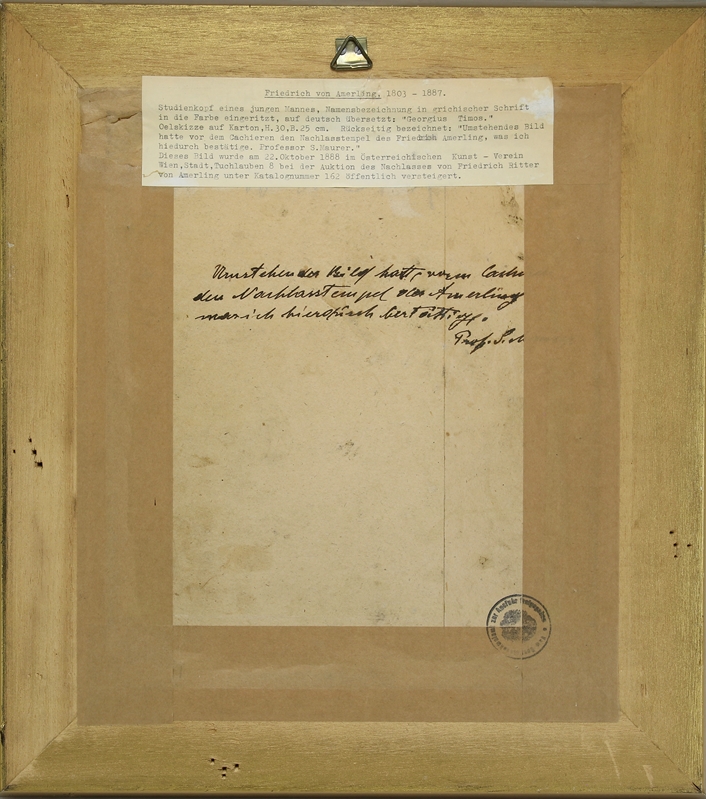 Friedrich von Amerling, 1803 - 1887.
Studienkopf eines jungen Mannes, Namensbezeichnung in grichischer Schrift
in die Farbe eingeritzt, auf deutsch übersetzt: "Georgius Timos."
Oelskizze auf Karton,H.30,B.25 cm. Rückseitig bezeichnet: "Umstehendes Bild
hatte vor dem Cachieren den Nachlasstempel des Friedrich Amerling, was ich
hiedurch bestätige. Professor S.Maurer."
Dieses Bild wurde am 22.Oktober 1888 im Österreichischen Kunst - Verein
Wien,Stadt,Tuchlauben 8 bei der Auktion des Nachlasses von Friedrich Ritter
von Amerling unter Katalognummer 162 öffentlich versteigert.
Umstehendes Bild hatte vorm Cachi
den Nachlasstempel des Amerling
was ich hierdurch bestättige.
Prof. S. M
zur Ausfuhr freigegeben